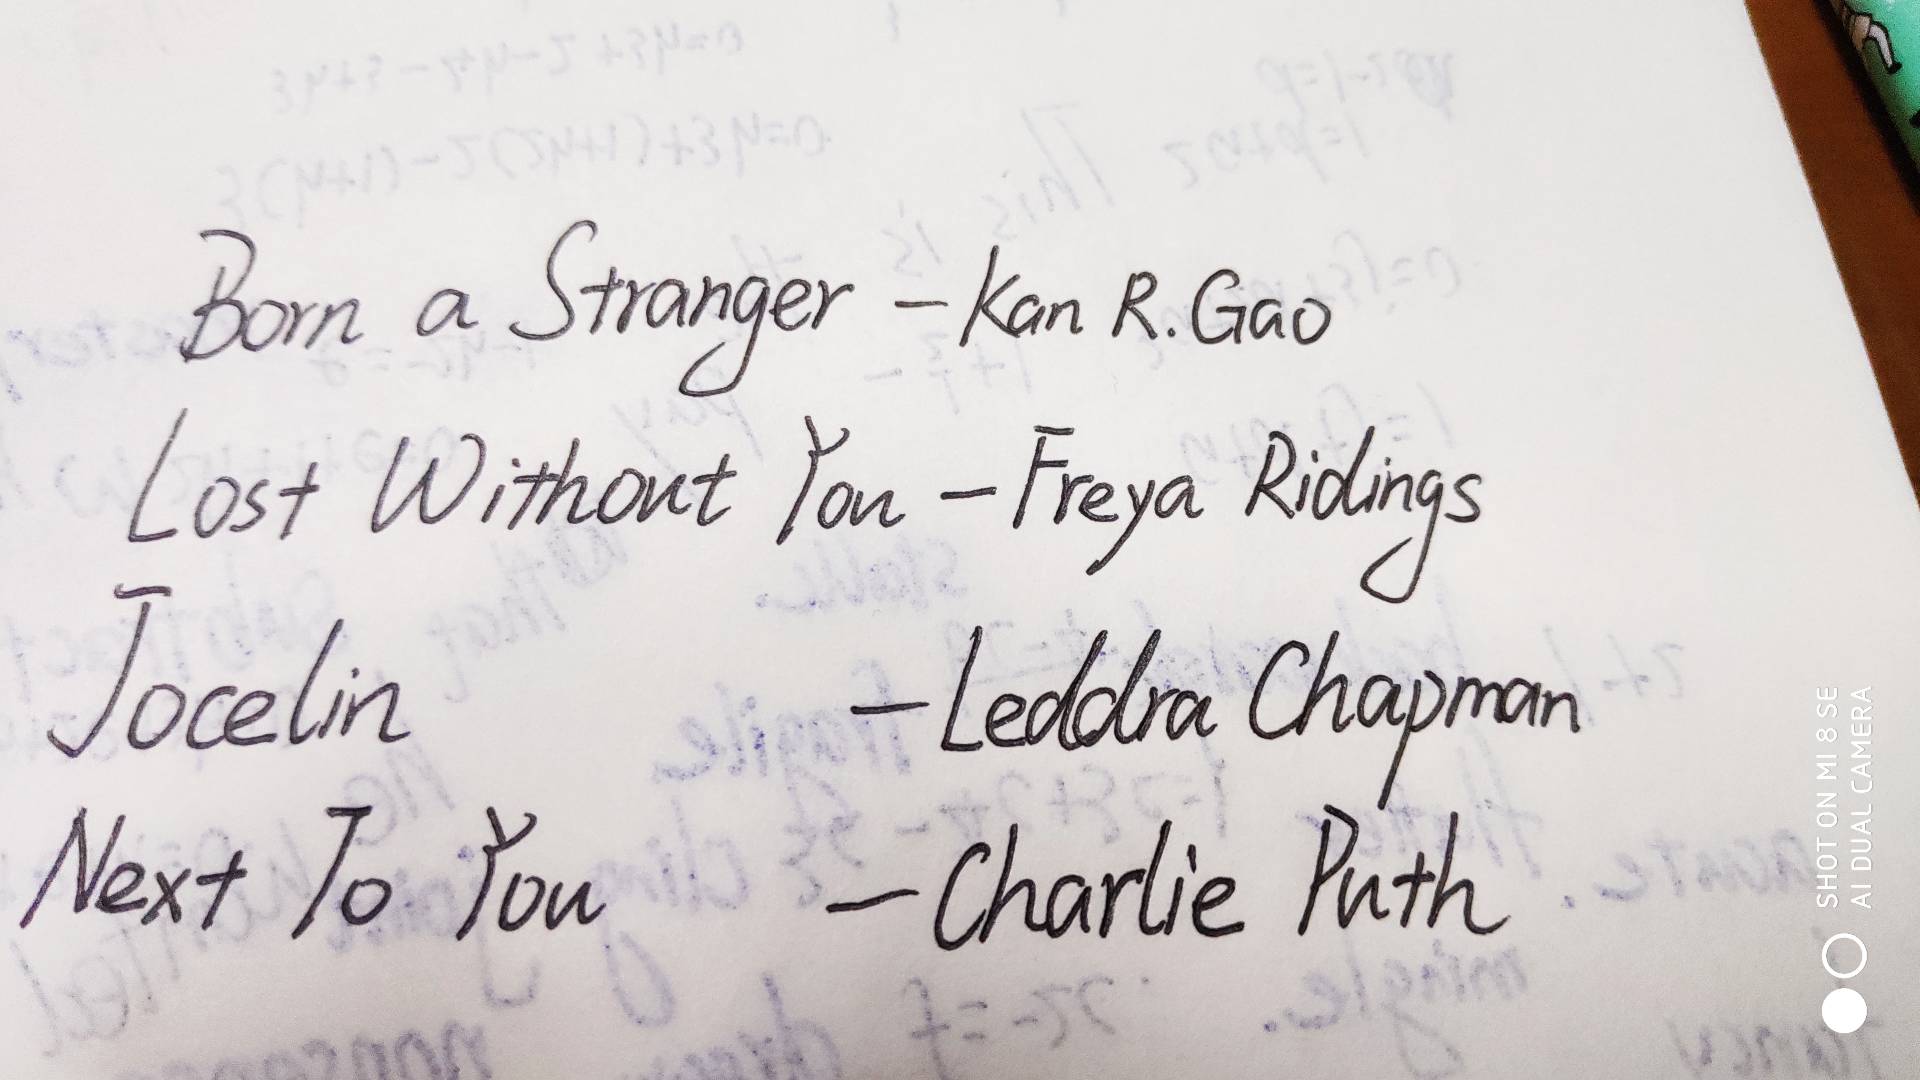 Born a Stranger - Kan R. Gao
Lost Without You - Freya Ridings
Jocelin - Leddra Chapman
Next To You - Charlie Puth
SHOT ON MI 8 SE
AI DUAL CAMERA